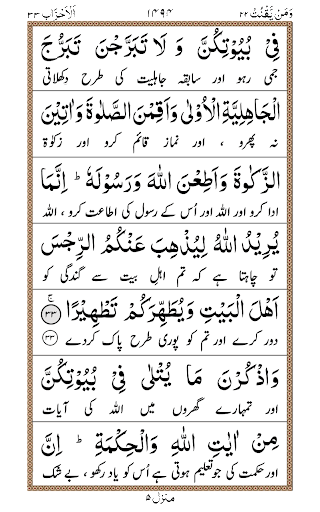 وَمَنْ يَّقْنُتْ ٢٢ ١٤٩٤ اَلْاَحْزَاب ٣٣
فِيْ بُيُوْتِكُنَّ وَ لَا تَبَرَّجْنَ تَبَرُّجَ
جمی رہو اور سابقہ جاہلیت کی طرح دکھلاتی
الْجَاهِلِيَّةِ الْاُوْلٰى وَاَقِمْنَ الصَّلٰوةَ وَاٰتِيْنَ
نہ پھرو ، اور نماز قائم کرو اور زکوٰۃ
الزَّكٰوةَ وَاَطِعْنَ اللّٰهَ وَرَسُوْلَهٗ ؕ اِنَّمَا
ادا کرو اور اللہ اور اُس کے رسول کی اطاعت کرو ، اللہ
يُرِيْدُ اللّٰهُ لِيُذْهِبَ عَنْكُمُ الرِّجْسَ
تو چاہتا ہے کہ تم اہلِ بیت سے گندگی کو
اَهْلَ الْبَيْتِ وَيُطَهِّرَكُمْ تَطْهِيْرًا ۚ ٣٣
دور کرے اور تم کو پوری طرح پاک کردے ٣٣
وَاذْكُرْنَ مَا يُتْلٰى فِيْ بُيُوْتِكُنَّ
اور تمہارے گھروں میں اللہ کی آیات
مِنْ اٰيٰتِ اللّٰهِ وَالْحِكْمَةِ ؕ اِنَّ
اور حکمت کی جو تعلیم ہوتی ہے اُس کو یاد رکھو ، بے شک
منزل ٥